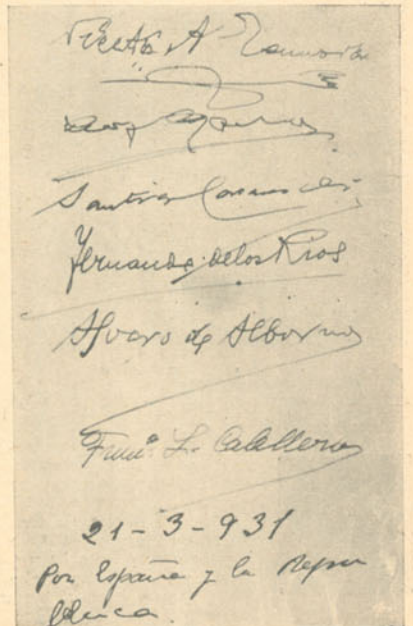 Niceto A Zamora
Santiago Casares
Fernando de los Rios
Alvaro de Albornoz
Franᶜᵒ L. Caballero
21-3-931
Por España y la Repu
blica.